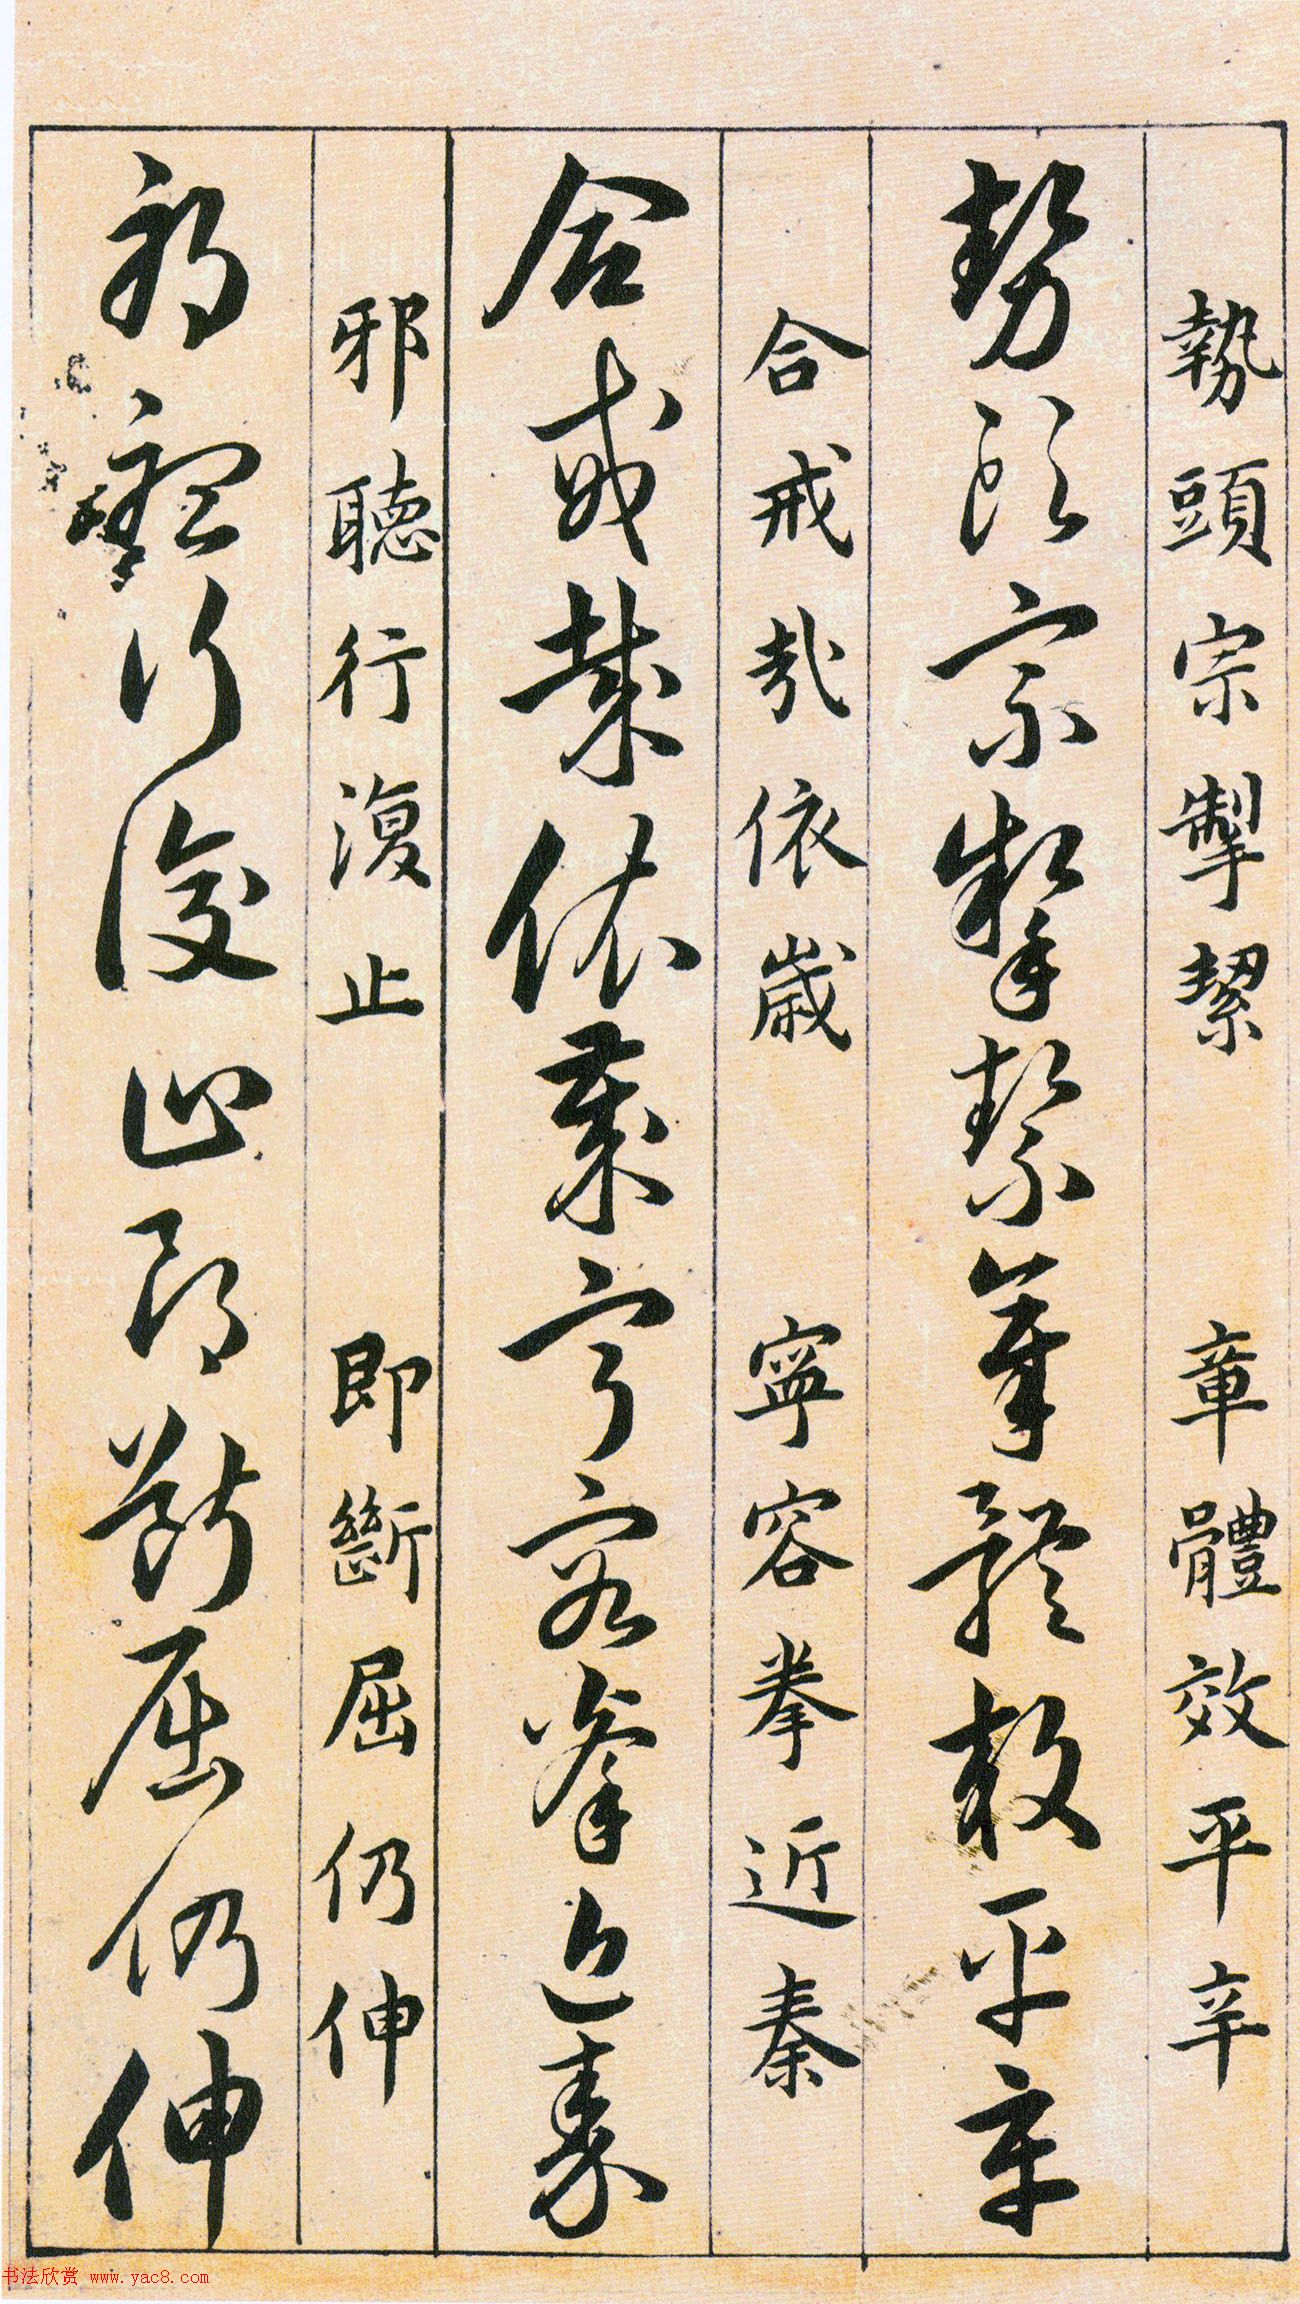 勢頭宗掣絜 章體效平辛
勢頭宗掣絜章體效平辛
合戒哉依歲 寧容拳近秦
合戒哉依歲寧容拳近秦
邪聽行復止 即斷屈仍伸
邪聽行復止即斷屈仍伸
书法欣赏 www.yac8.com